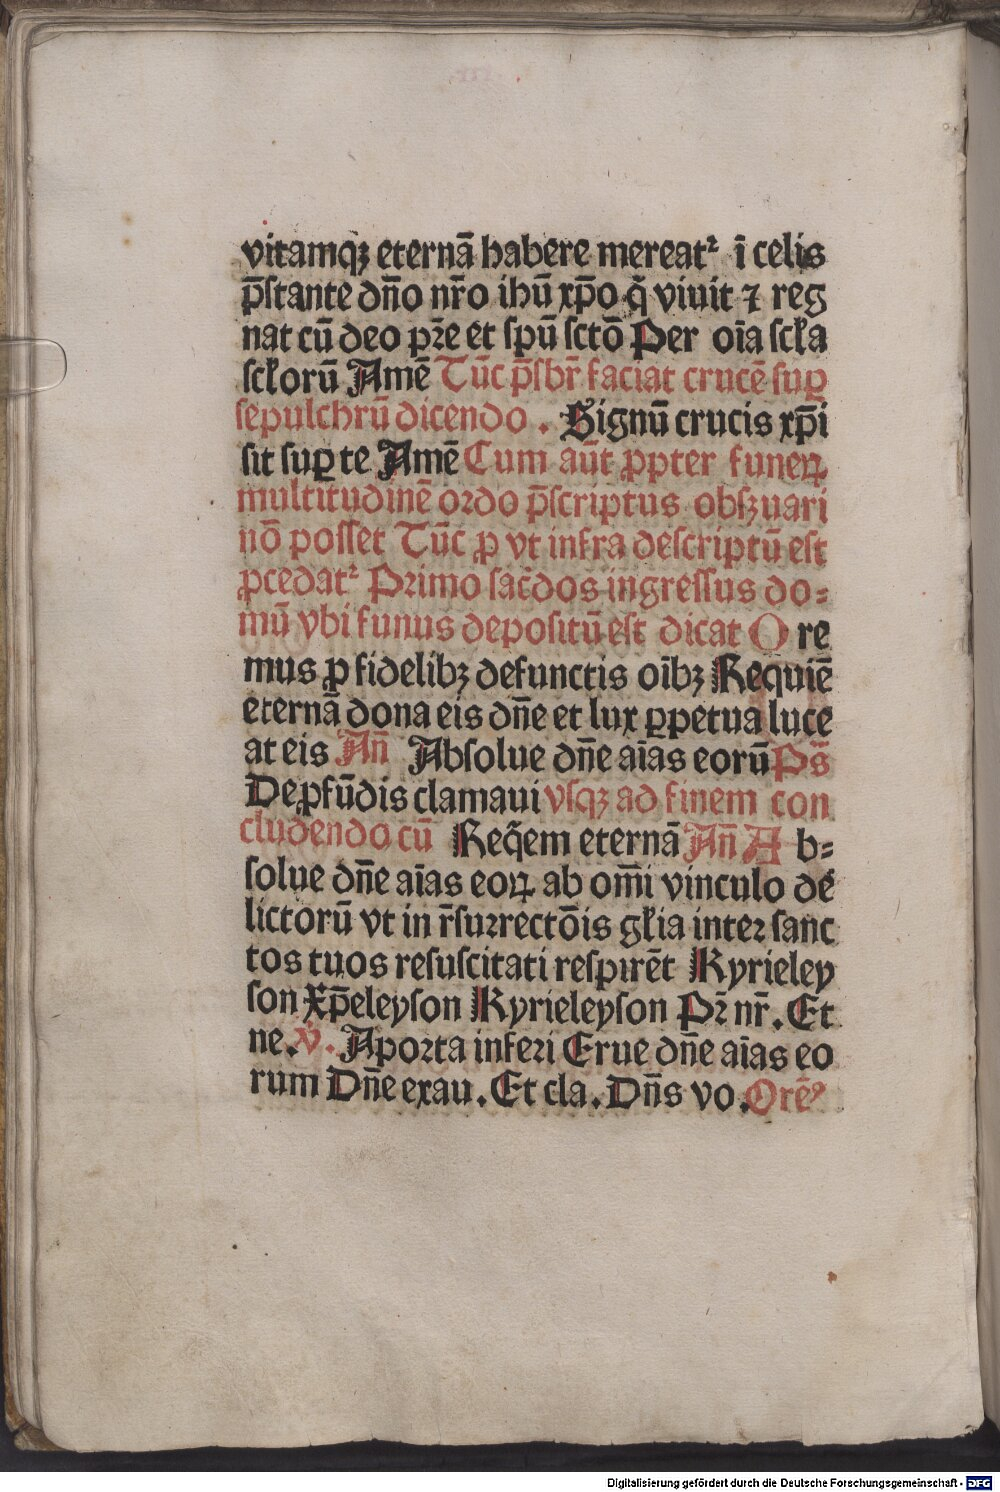 vitamqꝫ eternā habere mereatᷣ ī celis
p̄stante dn̄o nr̄o ihū xp̄o q̄ viuit ⁊ reg
nat cū deo pr̄e et spū sctō Per oīa scƚa
scƚorū Amē Tūc p̄sbr̄ faciat crucē suꝑ
sepulchrū dicendo . Signū crucis xp̄i
sit suꝑ te Amē Cum aūt ꝓpter funeꝝ
multitudinē ordo p̄scriptus obsꝫuari
nō posset Tūc ꝓ vt infra descriptū est
ꝓcedatᷣ Primo sac̄dos ingressus do⸗
mū vbi funus depositū est dicat O re
mus ꝓ fidelibꝫ defunctis oībꝫ Requiē
eternā dona eis dn̄e et lux ꝑpetua luce
at eis An̄ Absolue dn̄e aīas eorū Ps̄
De ꝓfūdis clamaui vsqꝫ ad finem con
cludendo cū Req̄em eternā An̄ A b⸗
solue dn̄e aīas eoꝝ ab om̄i vinculo de
lictorū vt in r̄surrectōis gƚia inter sanc
tos tuos resuscitati respirēt Kyrieley
son Xp̄eleyson Kyrieleyson Pr̄ nr̄. Et
ne. ℣. A porta inferi Erue dn̄e aīas eo
rum Dn̄e exau. Et cla. Dn̄s vo. Orēꝰ
Digitalisierung gefördert durch die Deutsche Forschungsgemeinschaft - DFG